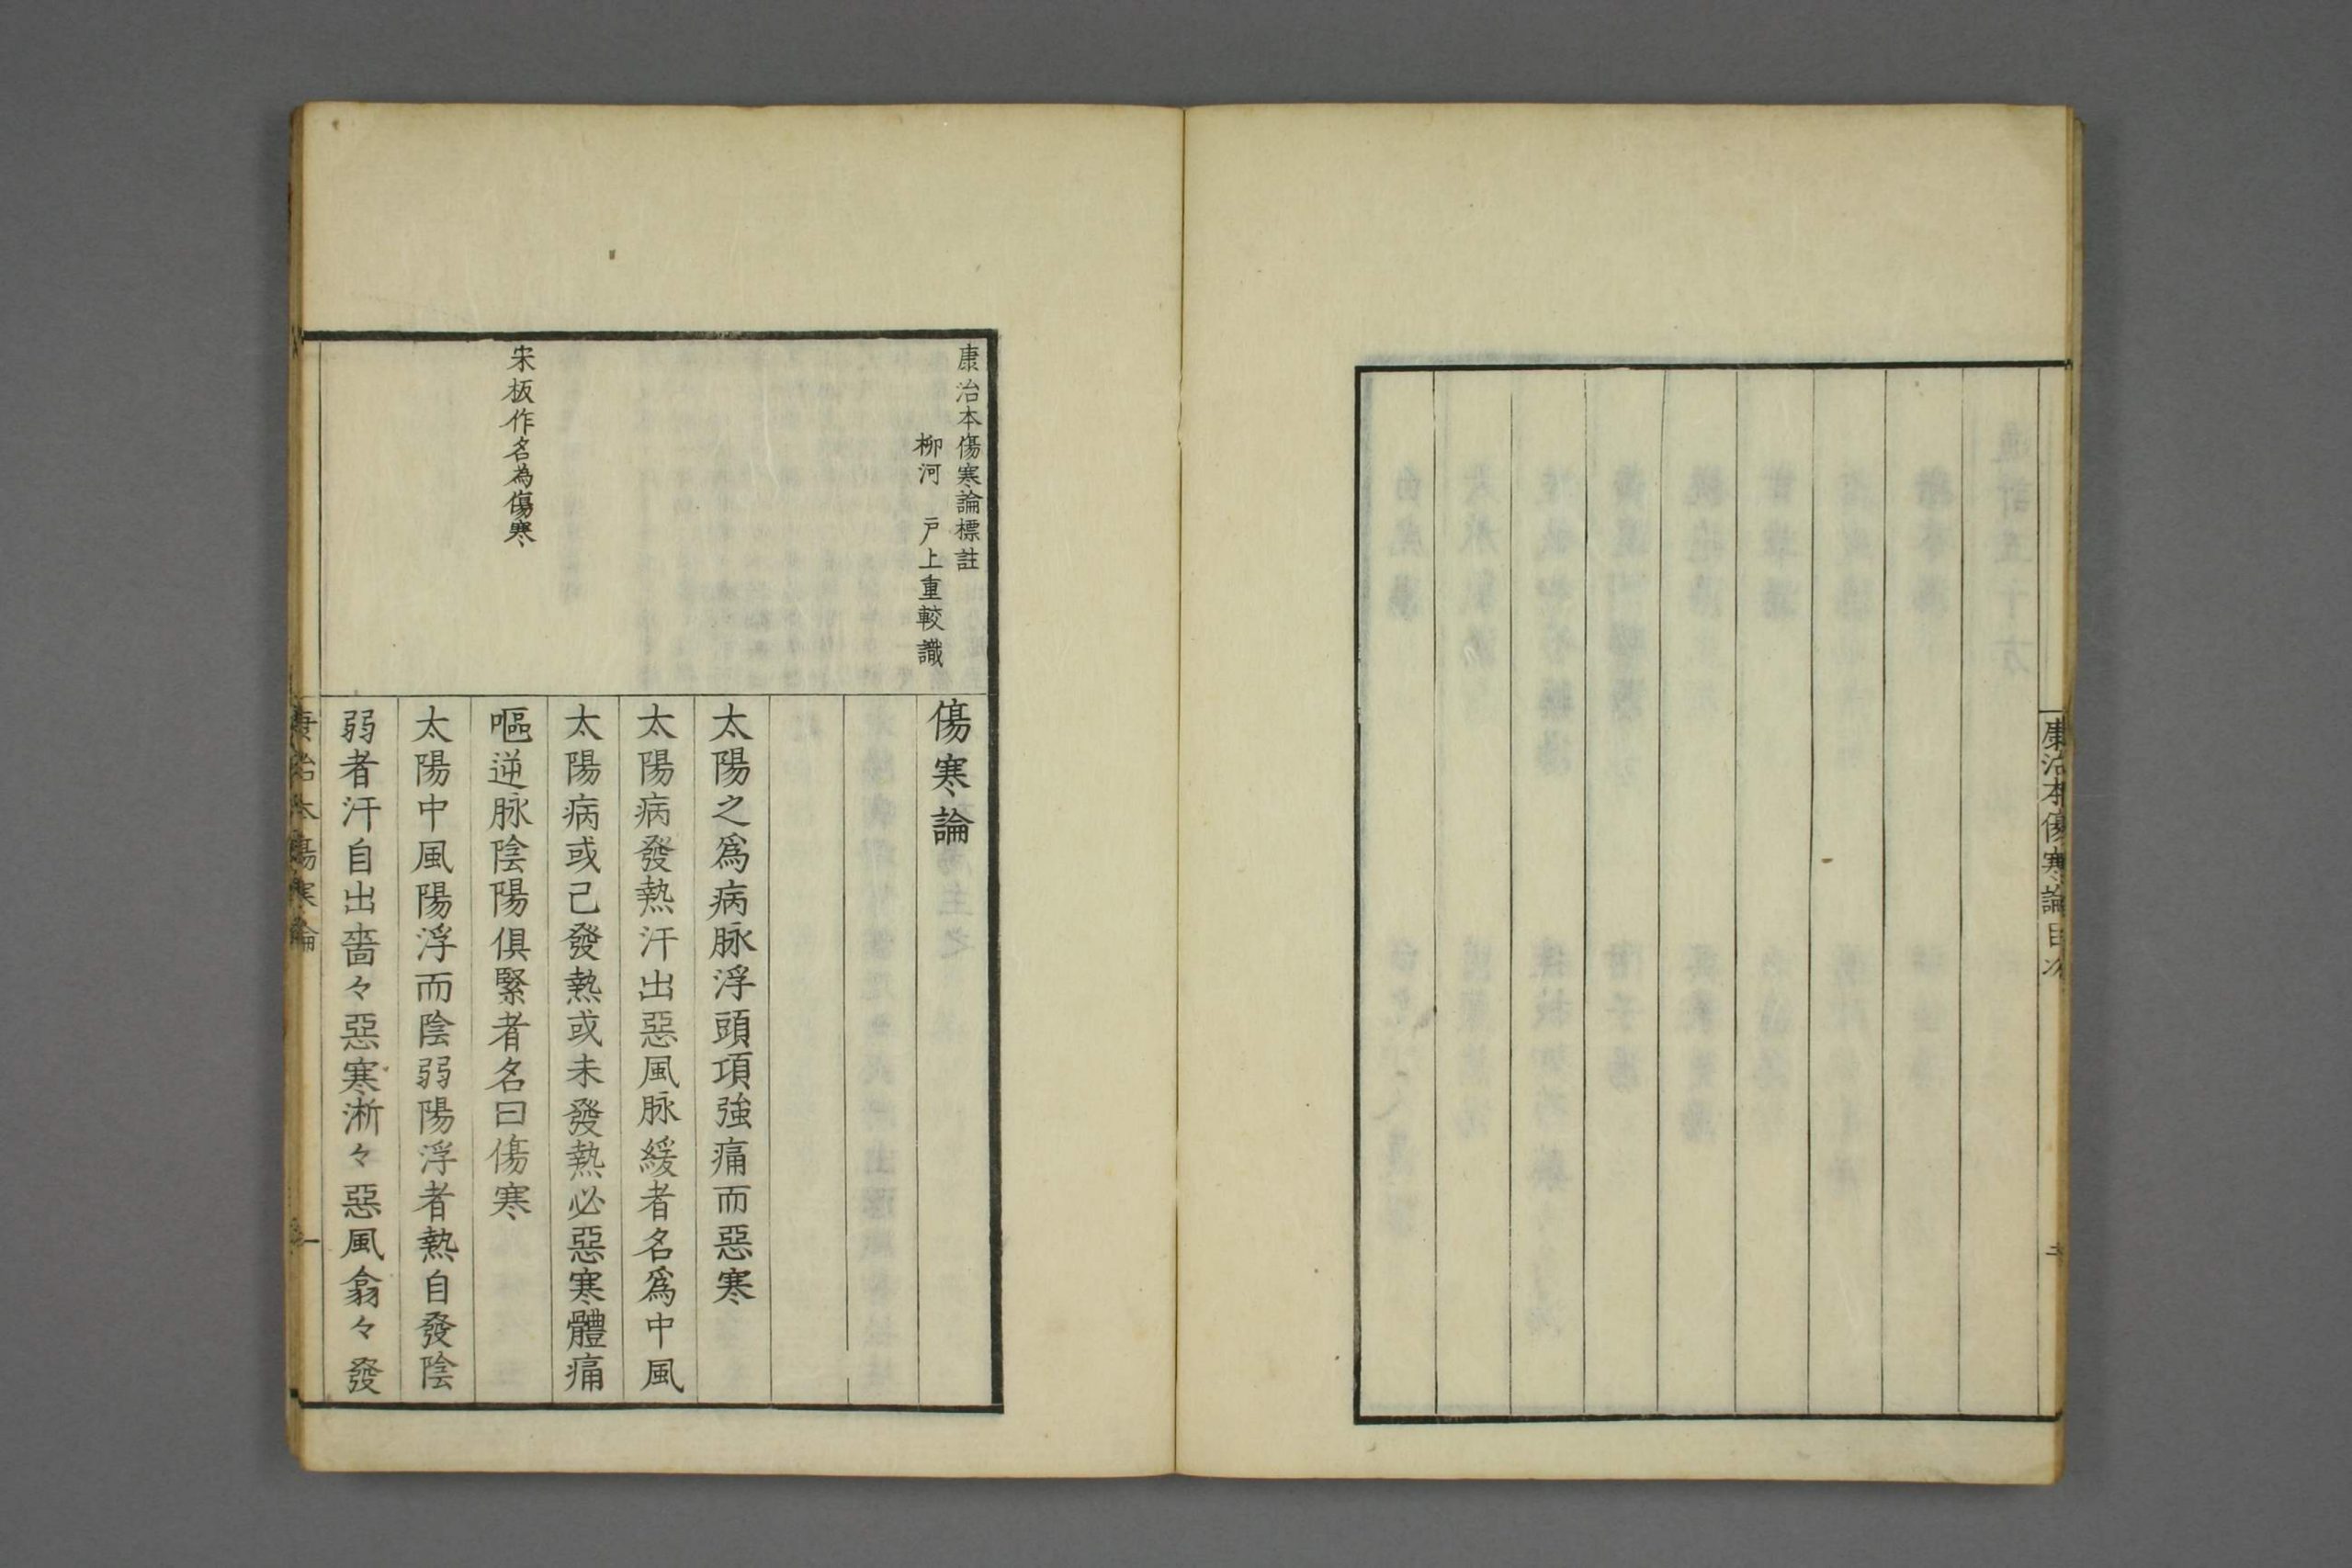 康治本傷寒論目次
康治本傷寒論標註
柳河　戸上重較識
宋板作名為傷寒
傷寒論
太陽之爲病脉浮頭項強痛而惡寒
太陽病發熱汗出惡風脉緩者名爲中風
太陽病或己發熱或未發熱必惡寒體痛
嘔逆脉陰陽俱緊者名曰傷寒
太陽中風陽浮而陰弱陽浮者熱自發陰
弱者汗自出嗇々惡寒淅々惡風翕々發
康治本傷寒論
一